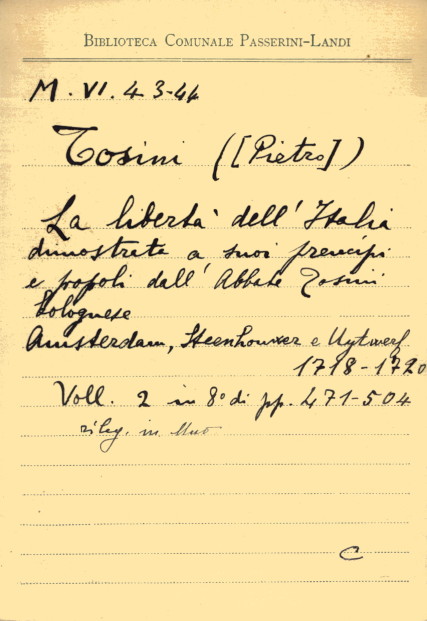 BIBLIOTECA COMUNALE PASSERINI-LANDI
M. VI. 43-44
Tosini ([Pietro])
La libertà dell'Italia
dimostrata a suoi prencipi
e popoli dall'Abbate Tosini
bolognese
Amsterdam, Steenhouwer e Uytwerf
1718-1720
Voll. 2 in 8° di pp. 471-504
rileg. in uno
C